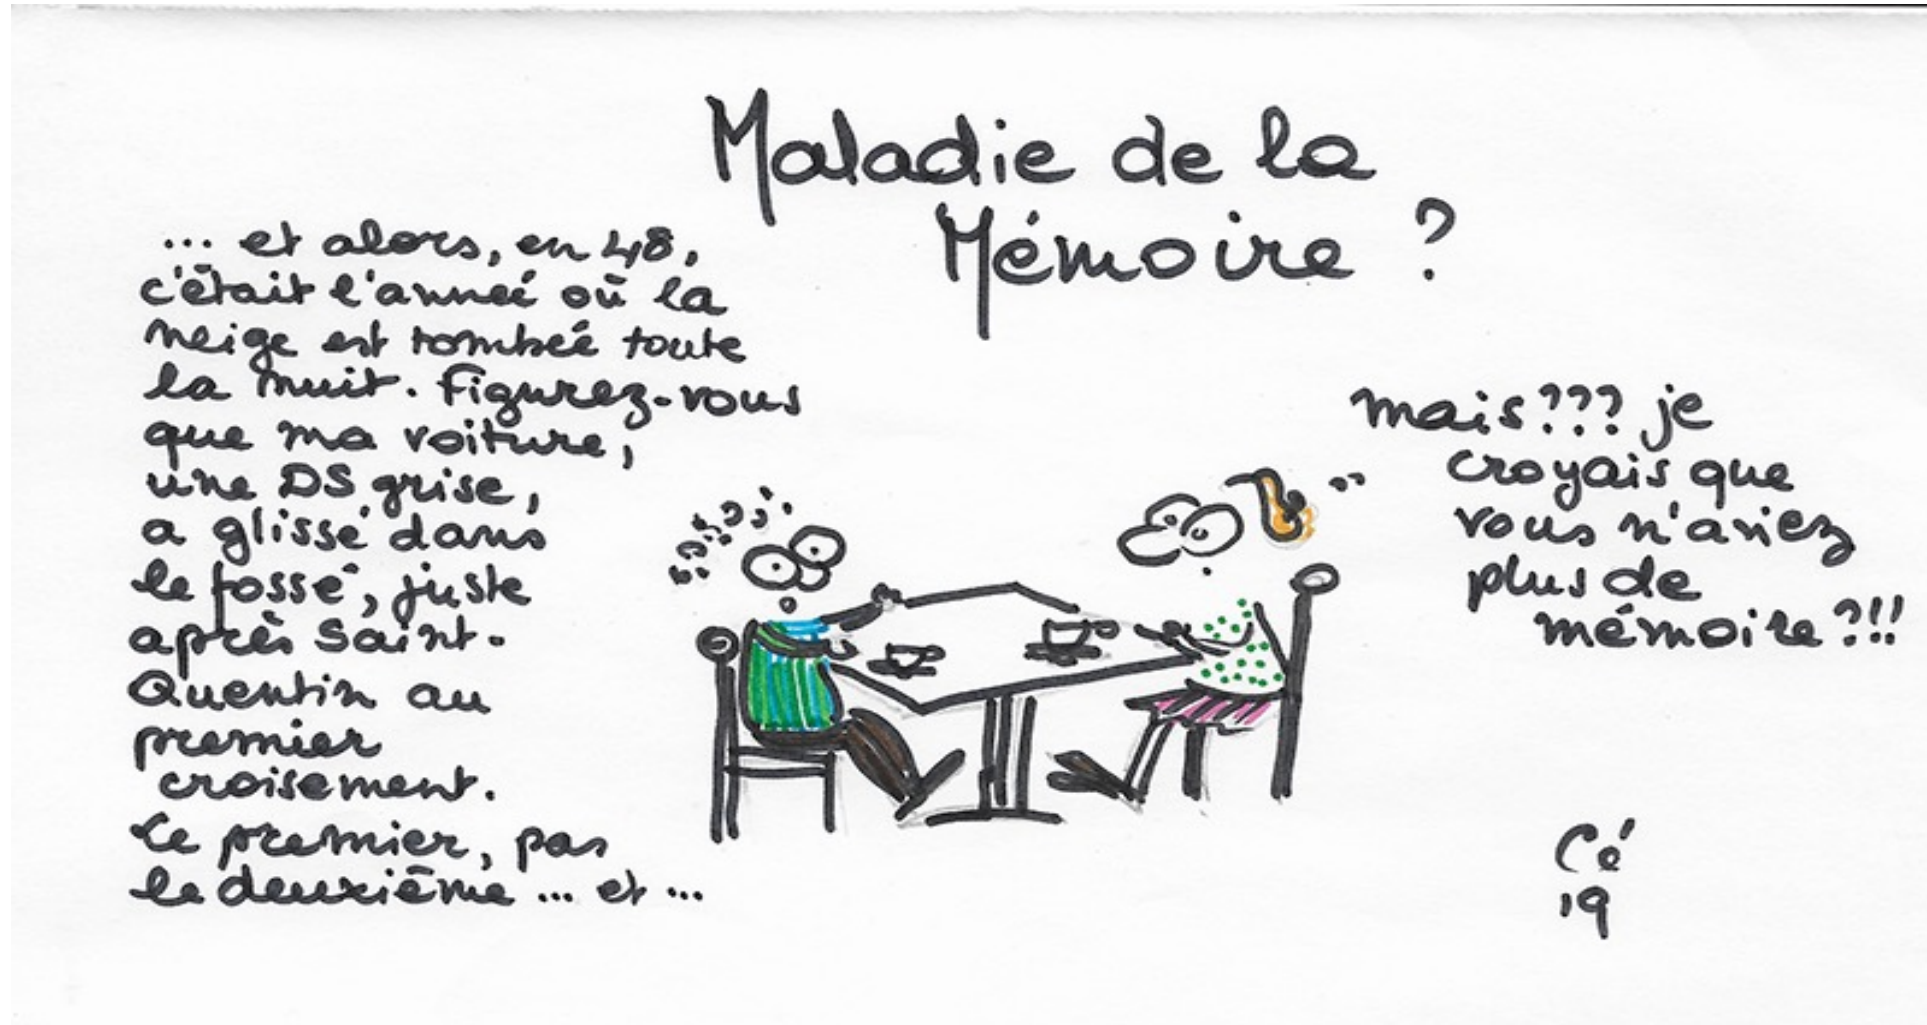 Maladie de la
Mémoire ?
... et alors, en 48,
c'était l'année où la
neige est tombée toute
la nuit. Figurez-vous
que ma voiture,
une DS grise,
a glissé dans
le fossé, juste
après Saint-
Quentin au
premier
croisement.
Le premier, pas
le deuxième ... et ...
mais??? je
croyais que
vous n'aviez
plus de
mémoire?!!
Cé
19